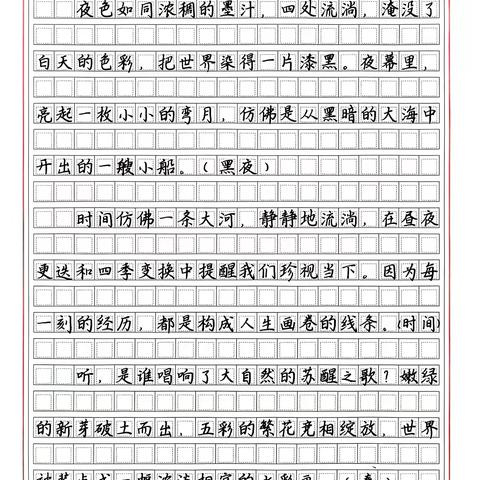 夜色如同浓稠的墨汁，四处流淌，淹没了
白天的色彩，把世界染得一片漆黑。夜幕里，
亮起一枚小小的弯月，仿佛是从黑暗的大海中
开出的一艘小船。（黑夜）
时间仿佛一条大河，静静地流淌，在昼夜
更迭和四季变换中提醒我们珍视当下。因为每
一刻的经历，都是构成人生画卷的线条。(时间)
听，是谁唱响了大自然的苏醒之歌？嫩绿
的新芽破土而出，五彩的繁花竞相绽放，世界